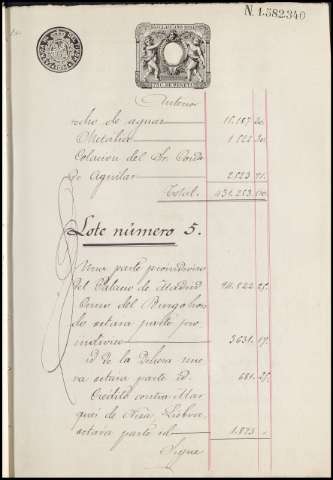 N. 1.582.340
Anterior
cho de aguas 30
Metálico 1.222 30
Colacion del Sr. Conde
de Aguilar 2.523 71
Total. 431.253
Lote número 5.
Una parte proindiviso
del Palacio de Madrid
Censo del
do octava parte pro
indiviso 3631. 17
id de la Dehesa nue
va octava parte id. 681. 25
Crédito contra Mar
qués de Nisa, Lisboa,
octava parte id 1.873
Sigue